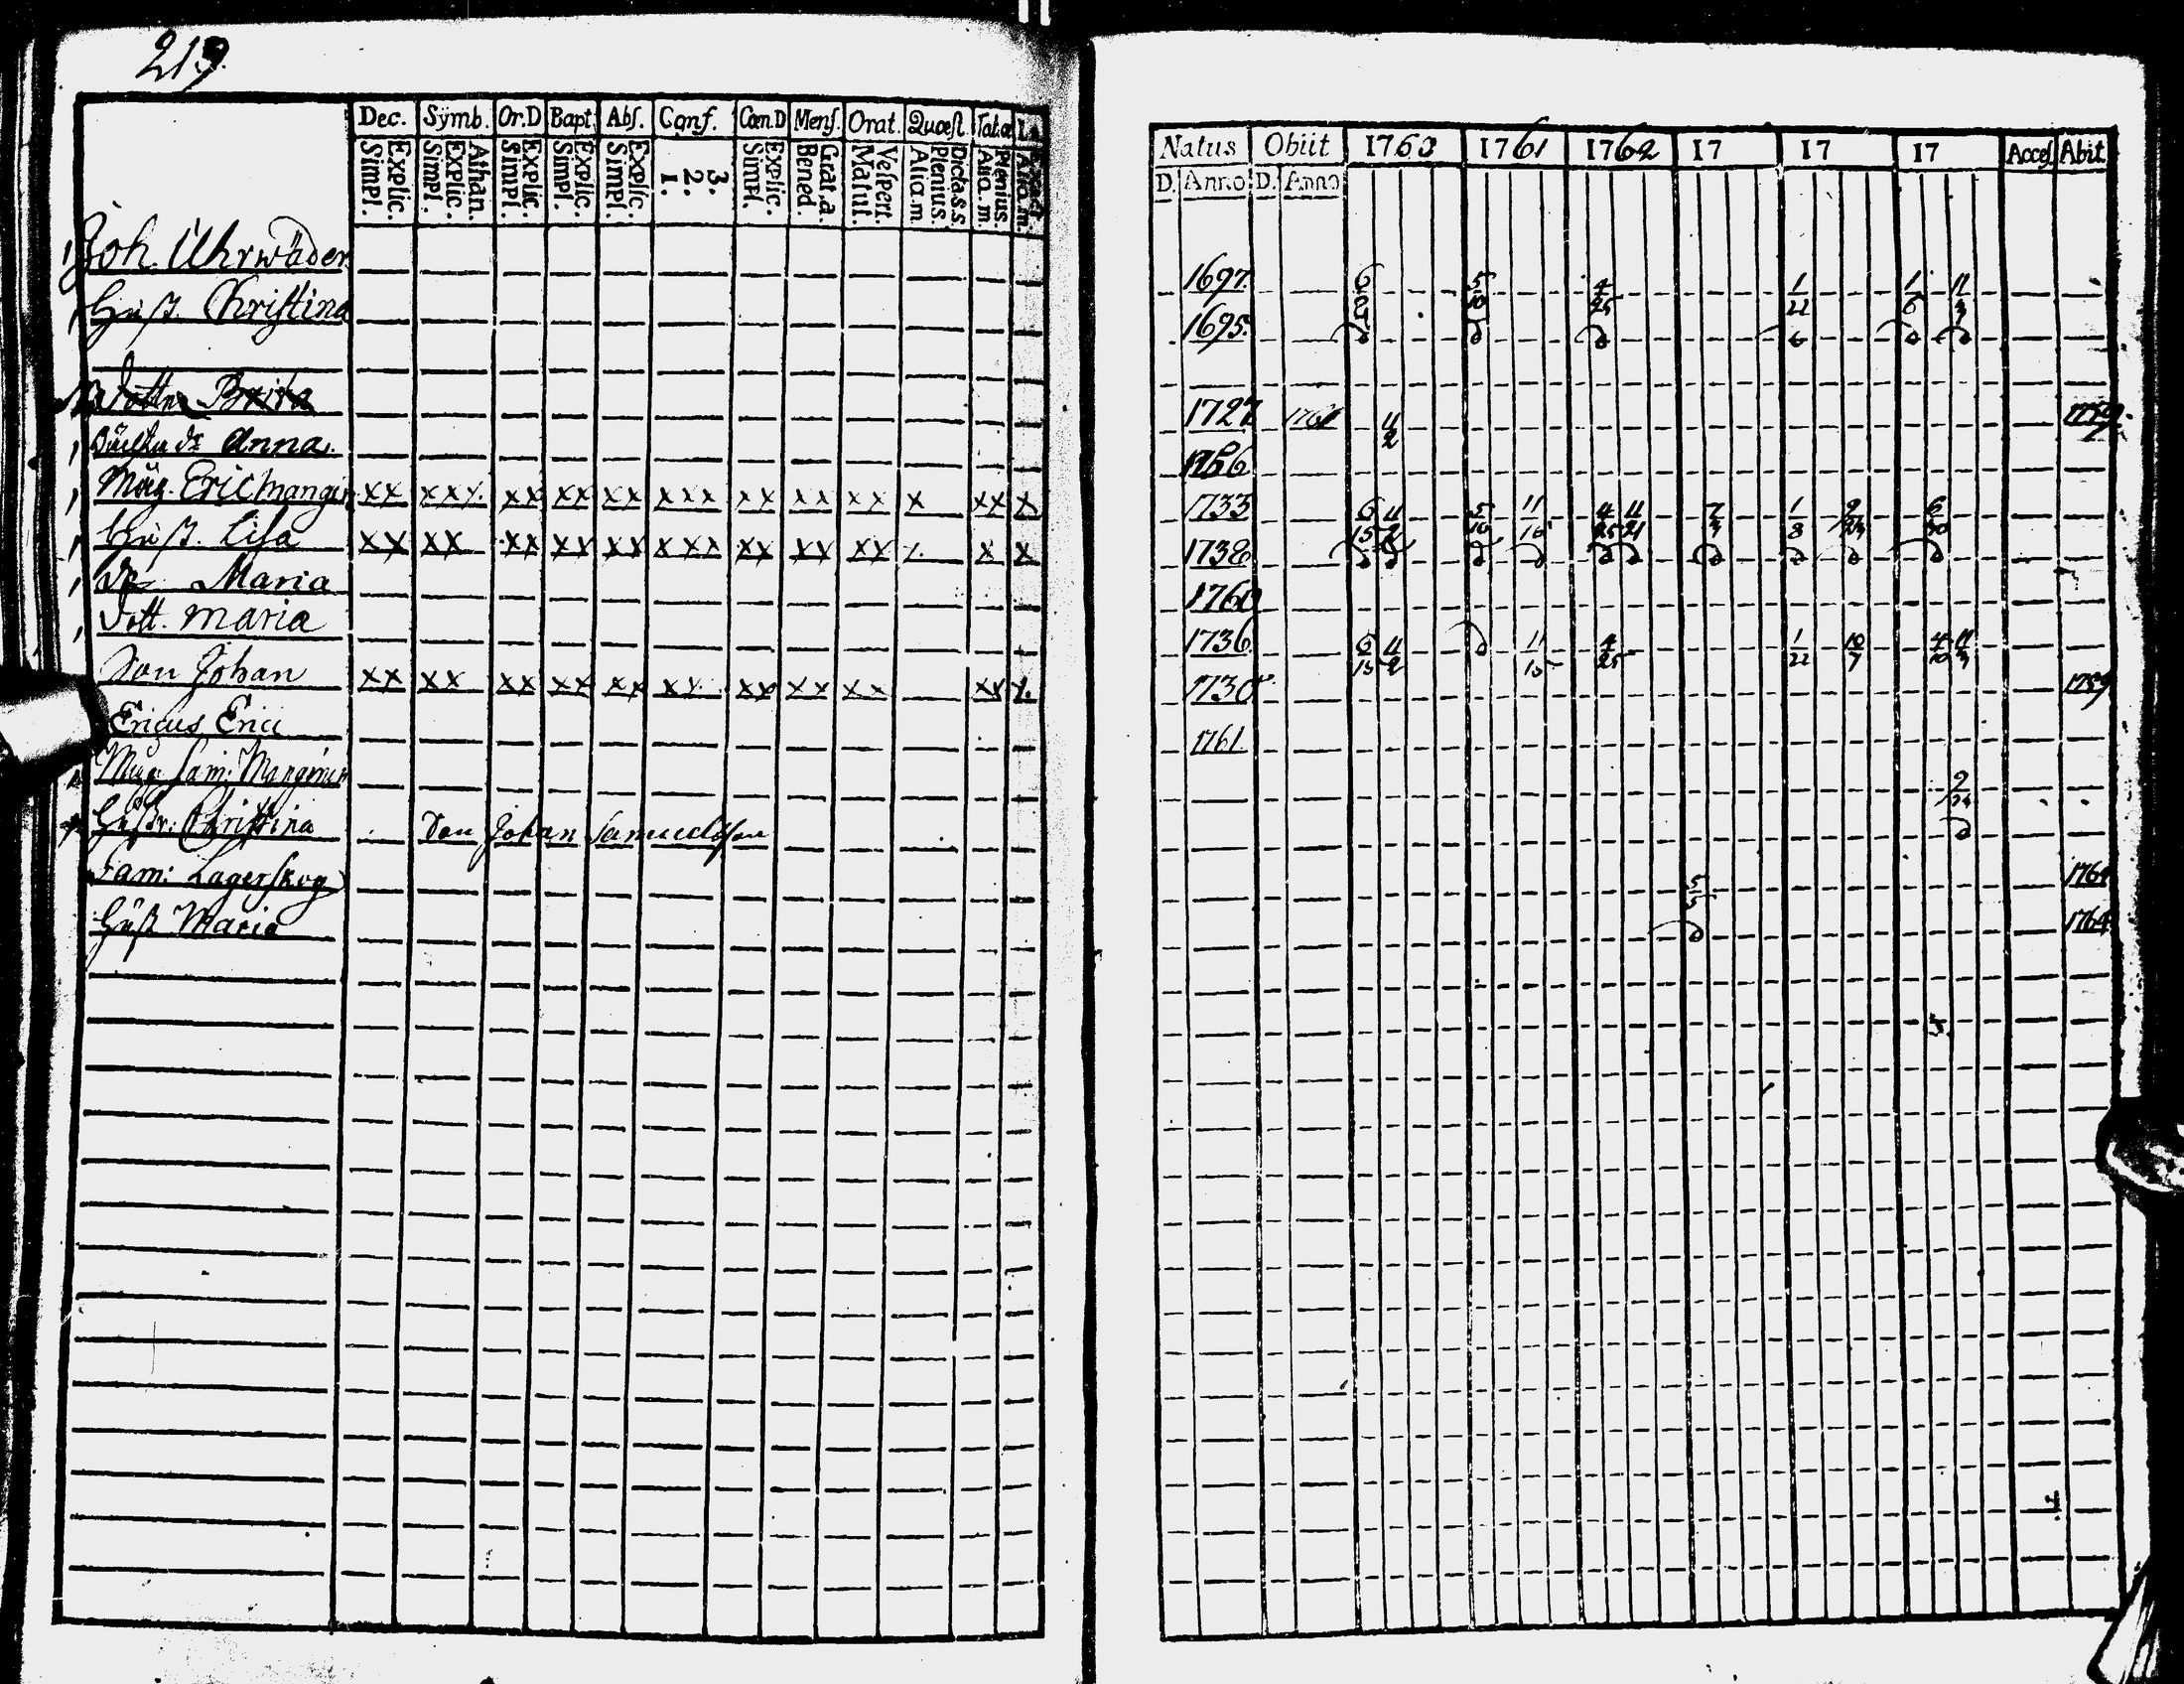 219.
Dec. Symb. Or.D Bapt. Abſ. Conf. Cœn.D Menſ. Orat. Quæſt. Tab.œ
Explic. Simpl. Athan. Explic. Simpl. Explic. Simpl. Explic. Simpl. Explic. Simpl. 3. 2. 1. Explic. Simpl. Grat.a. Bened. Veſpert. Matut. Dicta.s.s. Plenius. Alia.m. Plenius. Alia.m.
Joh. Uhrwäder
Huſt. Chriſtina
Dotter Brita
Anna
Måg. Eric Mangin xx xxx xx xx xx xxx xx xx xx x xx x
Huſt. Liſa xx xx xx xx xx xxx xx xx xx x x x
Maria
Dott. Maria
Son Johan xx xx xx xx xx xx xx xx xx xx x
Ericus Erici
Sam: Mangin
Huſtr: Chriſtina Son Johan Samuelsſon
Sam: Lagerſkog
Huſt Maria
Natus Obiit 1760 1761 1762 17 17 17 Acceſ Abit
D. Anno D. Anno
1697. 6 5/10 4/25 1/22 1/6 11/3
1695.
1727 1761 11/2 1759.
1733 6/15 11/2 5/10 11/16 4/25 11/21 7/7 1/8 9/24 6/20
1738
1760
1736 6/15 11/2 11/15 4/25 1/22 10/7 4/10 11/3
1730 1759
1761
9/24
5 1764
1764